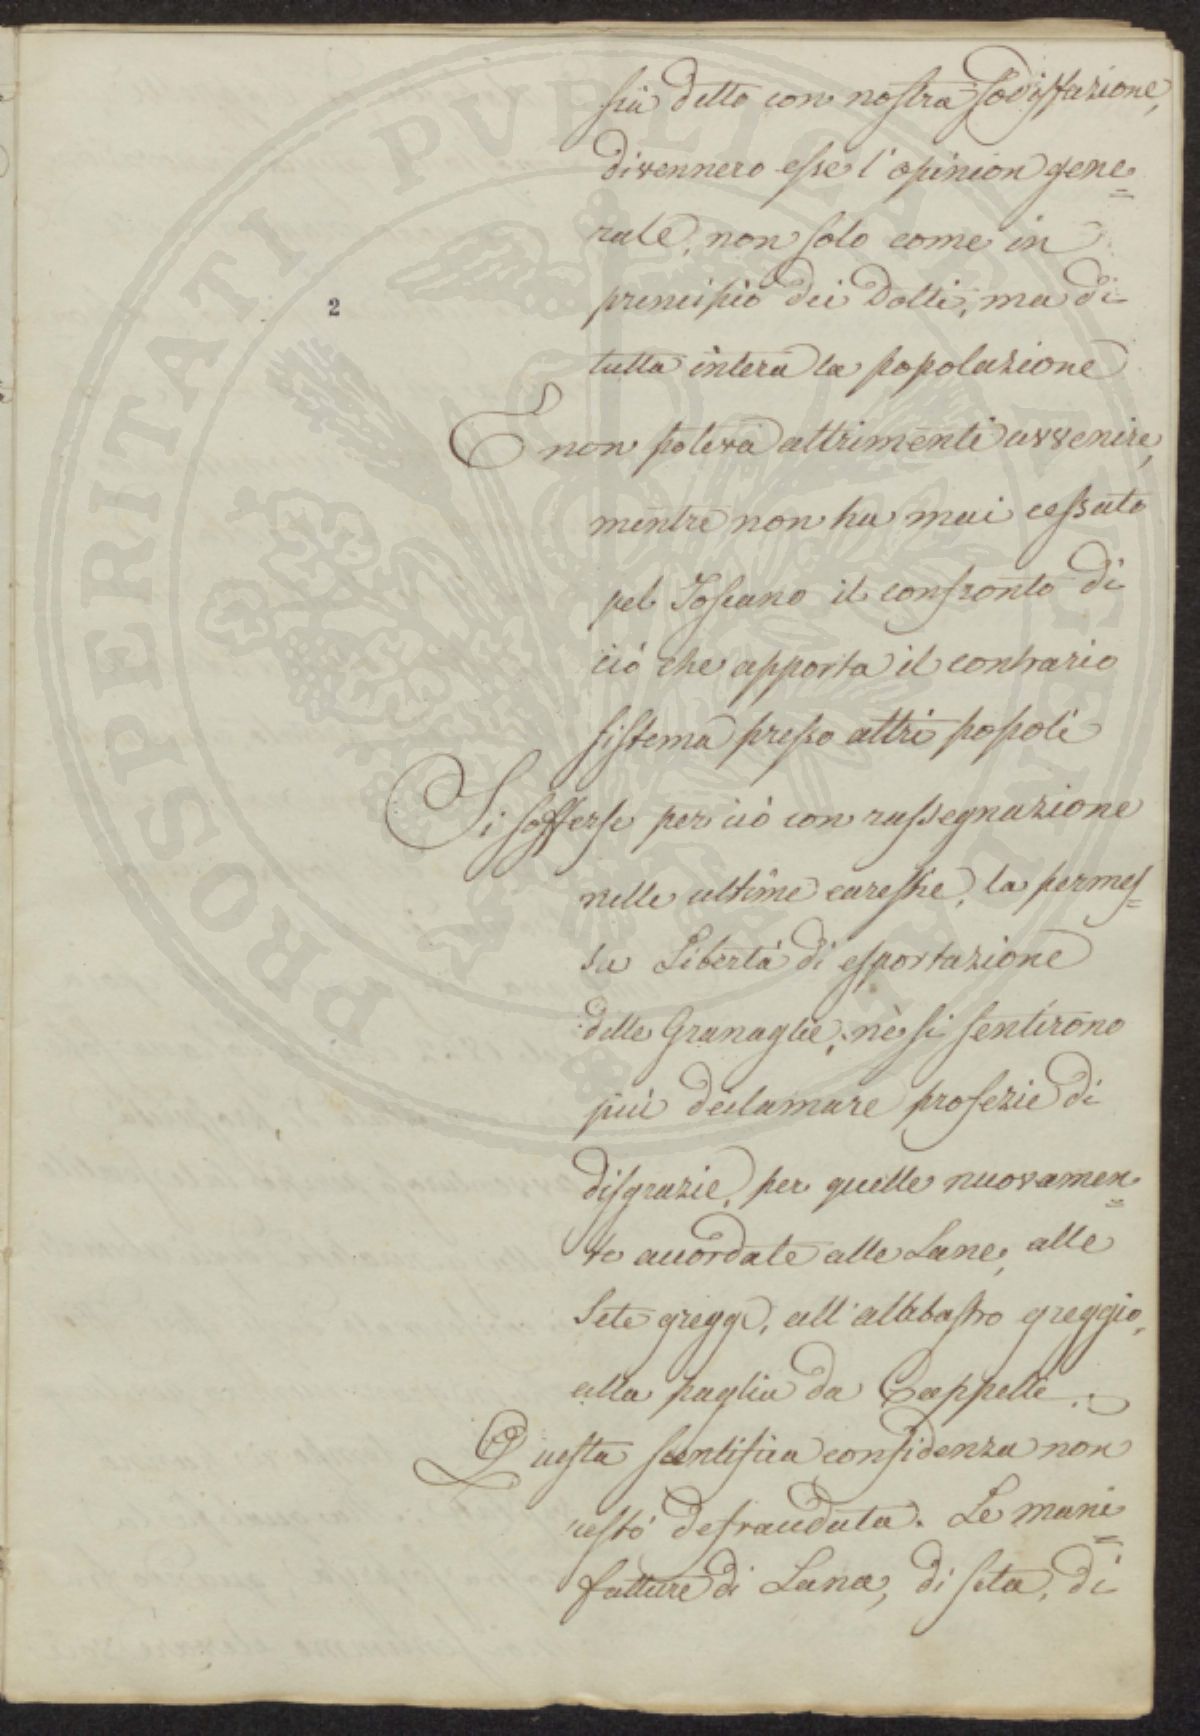 più detto con nostra sodisfazione,
divennero esse l'opinion gene=
rale, non solo come in
principio dei Dotti, ma di
2
tutta intera la popolazione
E non poteva altrimenti avvenire,
mentre non ha mai cessato
pel Toscano il confronto di
ciò che apporta il contrario
sistema presso altri popoli
Si sofferse per ciò con rassegnazione
nelle ultime carestie, la permes=
sa Libertà di esportazione
delle Granaglie, nè si sentirono
più declamare profezie di
disgrazie, per quelle nuovamen=
te accordate alle Lane, alle
Sete gregge, all'alabastro greggio,
alla paglia da Cappelli.
Questa scentifica confidenza non
restò defraudata. Le mani=
fatture di Lana, di seta, di
PROSPERITATI PVBLICAE AVGENDAE